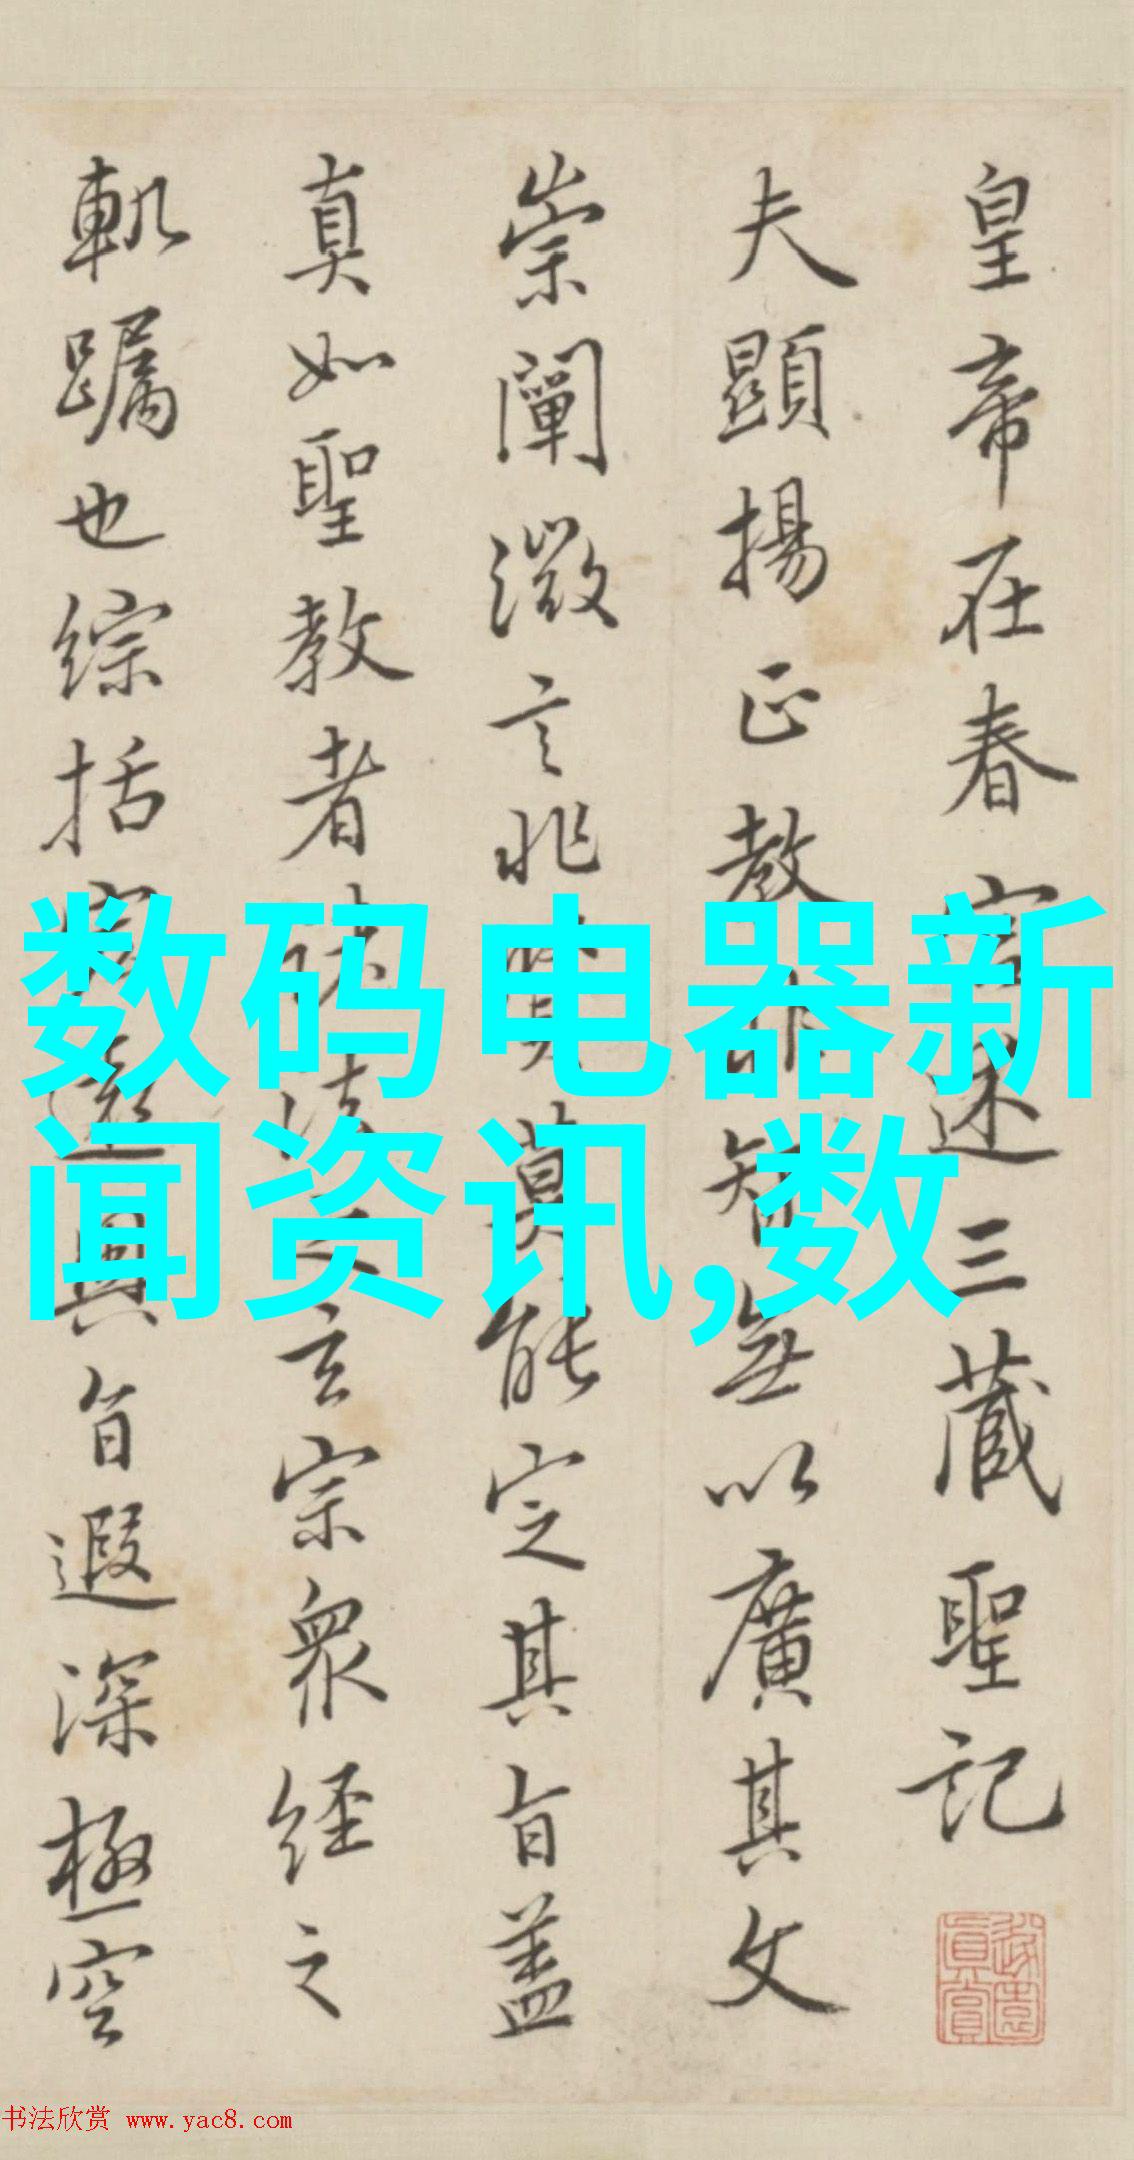 皇帝在春宮述三藏聖記
夫顯揚正教非智無以廣其文
崇闡微言非賢莫能定其旨盖
真如聖教者諸法之玄宗眾經之
軌躅也綜括宏遠奧旨遐深極空
数码电器新
闻资讯,数
书法欣赏 www.yac8.com